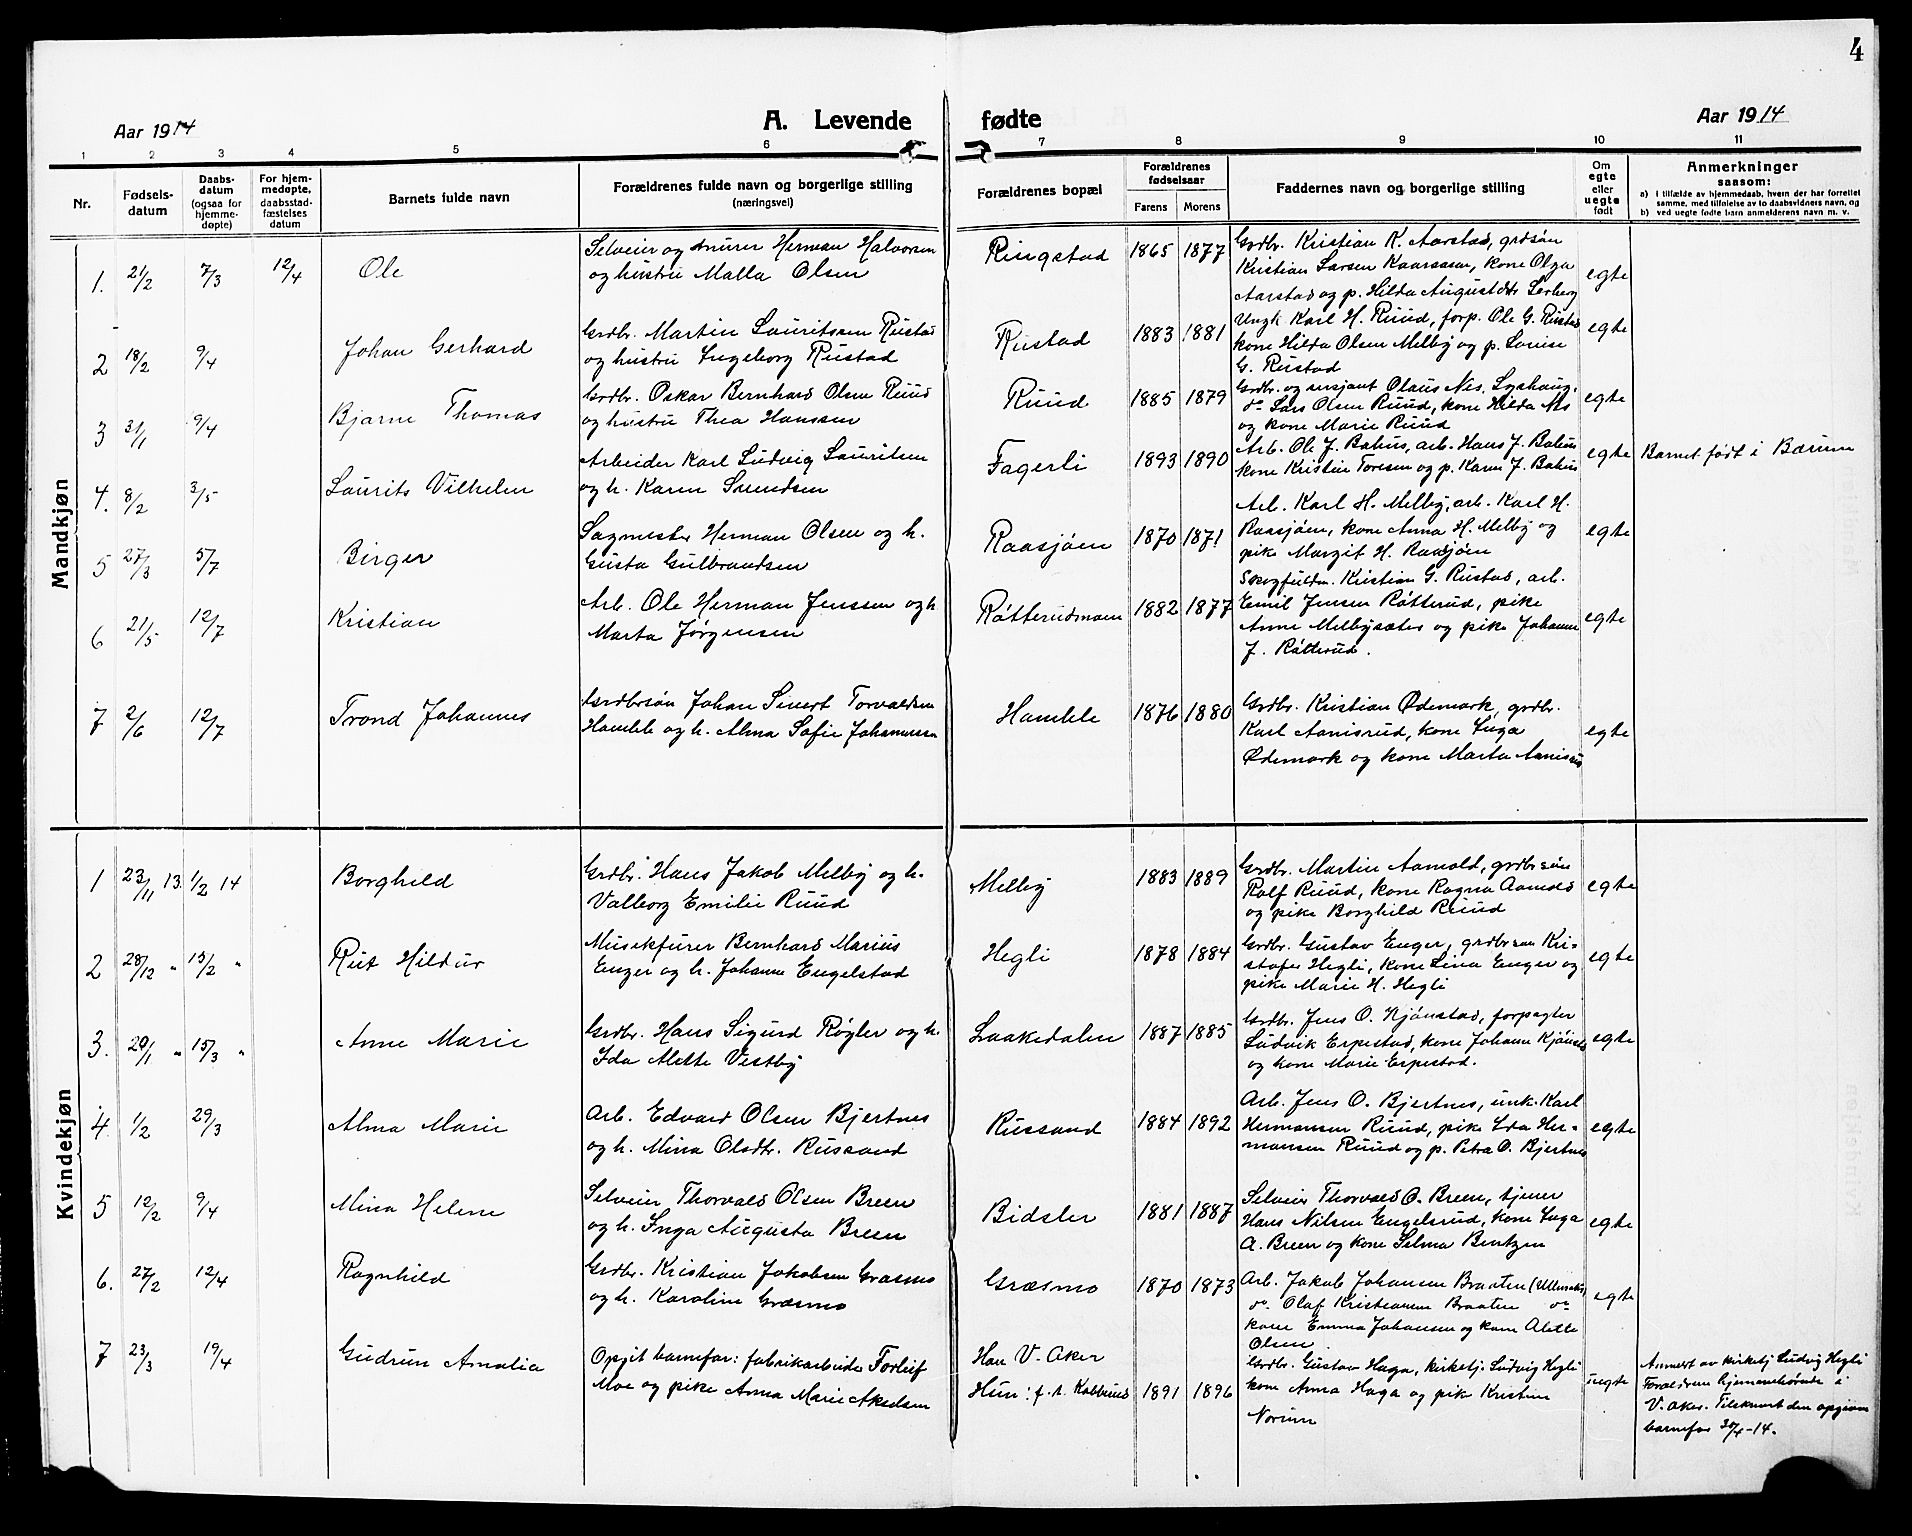 4
Aar 1914 A. Levende fødte Aar 1914
1 2 3 4 5 6 7 8 9 10 11
Nr. Fødsels-datum Daabs-datum (ogsaa for hjemme-døpte) For hjem-medøpte, daabsstad-fæstelses datum Barnets fulde navn Forældrenes fulde navn og borgerlige stilling (næringsvei) Forældrenes bopæl Forældrenes fødselsaar Farens Morens Faddernes navn og borgerlige stilling Om egte eller uegte født Anmerkninger saasom:
a) i tilfælde av hjemmedaab, hvem der har forrettet samme, med tilføielse av to daabsvidners navn, og
b) ved uegte fødte barn anmelderens navn m. v.
Mandkjøn
1. 21/2 7/3 12/4 Ole
Selveier og murer Herman Halvorsen
og hustru Malla Olsen
Ringstad 1865 1877
Grdbr. Kristian K. Aarstad, grdsøn
Kristian Larsen Kaarssen, kone Olga
Aarstad og p. Hilda Augustdtr Lerberg
egte
2 18/2 9/4 Johan Gerhard
Grdbr. Martin Lauritsen Rustad
og hustru Ingeborg Rustad
Rustad 1883 1881
Ungk Karl H. Ruud, forp. Ole G. Rustad
kone Hilda Olsen Melby og p. Louise
G. Rustad
egte
3 31/1 9/4 Bjarne Thomas
Grdbr. Oskar Bernhard Olsen Ruud
og hustru Thea Hanssen
Ruud 1885 1879
Grdbr. og sersjant Olaus Nes, Lyshaug,
do Lars Olsen Ruud, kone Hilda Nes
og kone Marie Ruud
egte
4. 8/2 3/5 Laurits Vilhelm
Arbeider Karl Ludvig Lauritsen
og h. Karen Svendsen
Fagerli 1893 1890
Arb. Ole J. Bahus, arb. Hans J. Bahus
kone Kristine Toresen og p. Karen J. Bahus
egte Barnet født i Bærum
5 27/3 5/7 Birger
Sagmester Herman Olsen og h.
Gusta Gulbrandsen
Raasjøen 1870 1871
Arb. Karl H. Melby, arb. Karl H.
Raasjøen, kone Anna H. Melby og
pike Margit H. Raasjøen
egte
6 21/5 12/7 Kristian
Arb. Ole Herman Jenssen og h
Marta Jørgensen
Røtterudmoen 1882 1877
Skogfuldm. Kristian G. Rustad, arb.
Emil Jensen Røtterud, pike
Anne Melbysæter og pike Johanne
J. Røtterud.
egte
7 2/6 12/7 Trond Johannes
Grdbrsøn Johan Sivert Torvaldsen
Hamble og h. Alma Sofie Johannessen
Hamble 1876 1880
Grdbr. Kristian Ødemark, grdbr.
Karl Aanisrud, kone Inga
Ødemark og kone Marta Aanisrud
egte
Kvindekjøn
1 23/11 13. 1/2 14 Borghild
Grdbr. Hans Jakob Melby og h.
Valborg Emilie Ruud
Melby 1883 1889
Grdbr. Martin Aamold, grdbrsøn
Rolf Ruud, kone Ragna Aamold
og pike Borghild Ruud
egte
2 28/12 " 15/2 " Rut Hildur
Musikfurer Bernhard Marius
Enger og h. Johanne Engelstad
Hegli 1878 1884
Grdbr. Gustav Enger, grdbrsøn Kri-
stofer Hegli, kone Lina Enger og
pike Marie H. Hegli
egte
3. 20/1 " 15/3 " Anne Marie
Grdbr. Hans Sigurd Røgler og h.
Ida Alette Vestby
Laakedalen 1887 1885
Grdbr. Jens O. Kjønstad, forpagter
Ludvik Erpestad, kone Johanne Kjønstad
og kone Marie Erpestad.
egte
4. 1/2 29/3 Alma Marie
Arb. Edvard Olsen Bjertnes
og h. Mina Olsdtr. Russand
Russand 1884 1892
Arb. Jens O. Bjertnes, unk. Karl
Hermansen Ruud, pike Ida Her-
mansen Ruud og p. Petra O. Bjertnes
egte
5 12/2 9/4 Mina Helene
Selveier Thorvald Olsen Breen
og h. Inga Augusta Breen
Bidsler 1881 1887
Selveier Thorvald O. Breen, tjener
Hans Nilsen Engelsrud, kone Inga
A. Breen og kone Selma Bentzen
egte
6. 27/2 12/4 Ragnhild
Grdbr. Kristian Jakobsen Græsmo
og h. Karoline Græsmo
Græsmo 1870 1873
Arb. Jakob Johansen Braaten (Ullensaker)
do Olaf Kristiansen Braaten do
kone Emma Johansen og kone Alette
Olsen
egte
7 23/3 19/4 Gudrun Amalia
Opgit barnefar: fabrikarbeider Torleif
Moe og pike Anna Marie Akselsen
Han V. Aker
Hun: f. t. Kolbrud 1891 1896
Grdbr. Gustav Haga, kirketj. Ludvig Hegli
kone Anna Haga og pike Kristine
Norum
uegte
Anmeldt av kirketj Ludvig Hegli
Forældrene hjemmehørende i
V. Aker. Tilskrevet den opgivne
barnefar 30/4-14.